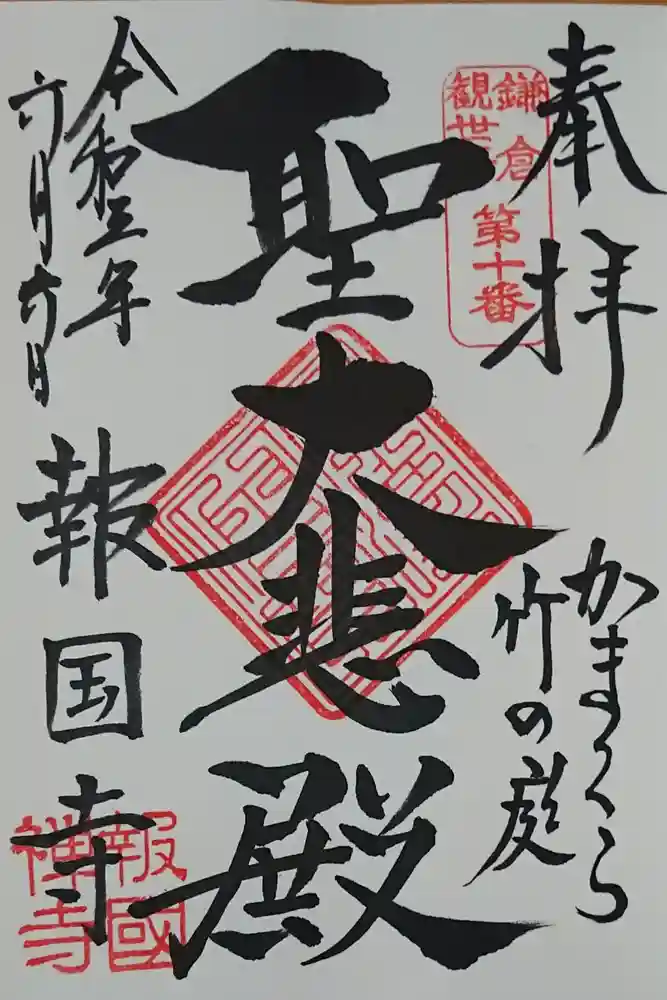 奉拝
鎌倉
観世
第十番
かまくら
竹の庭
聖
大悲殿
令和三年
六月六日
報国寺
報國
禅寺